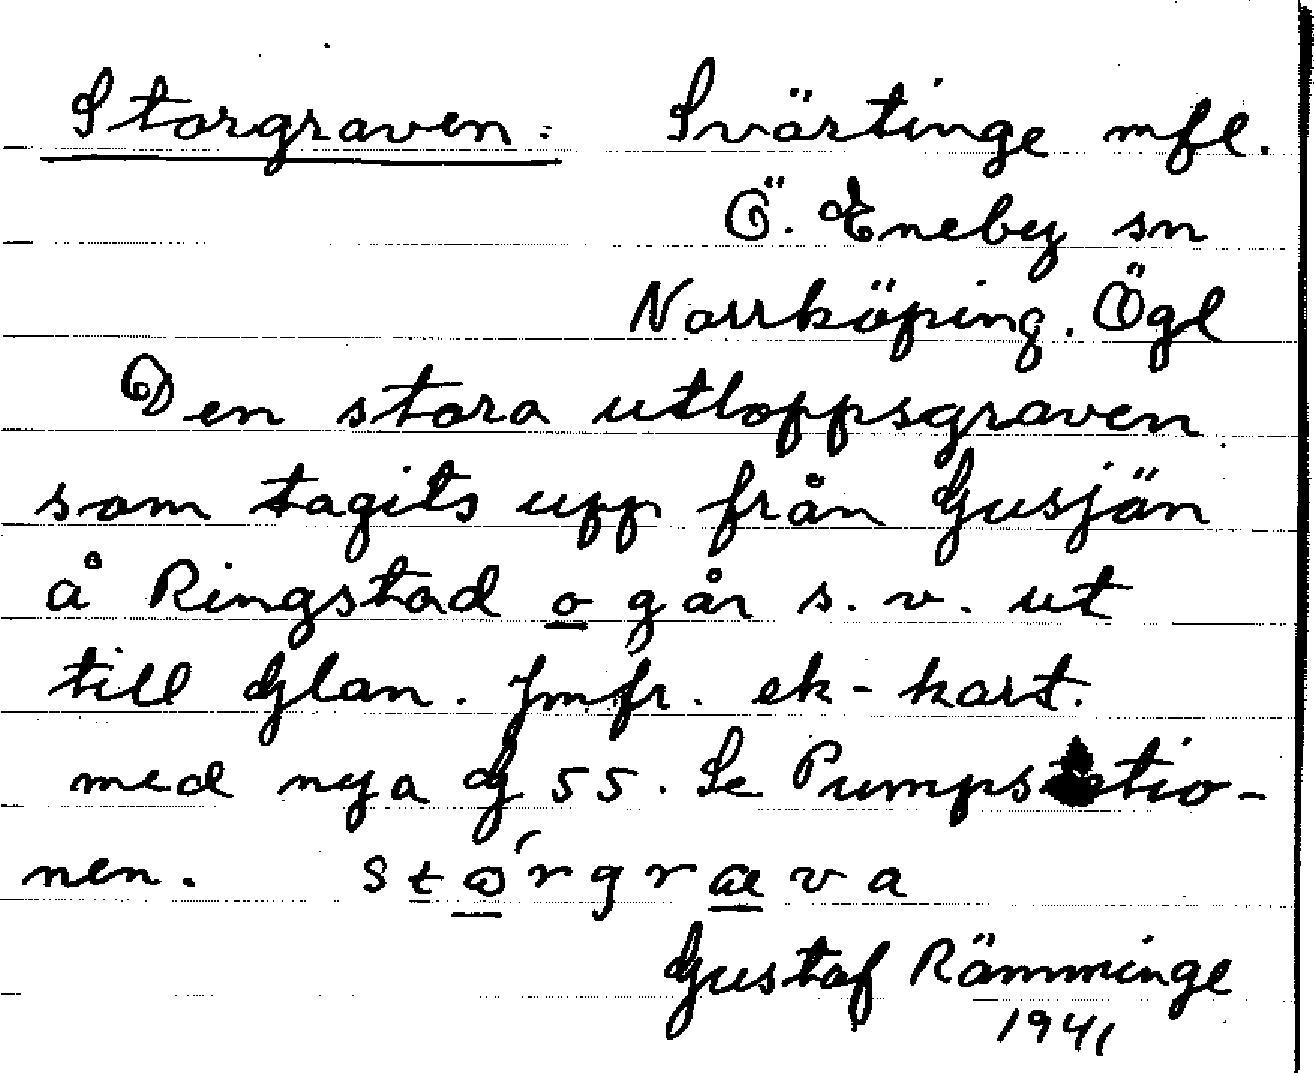 Storgraven. Svärtinge mfl.
Ö. Eneby sn
Norrköping. Ögl
Den stora utloppsgraven
som tagits upp från Gusjön
å Ringstad o går s. v. ut
till Glan. Jmfr. ek-kart.
med nya G 55. Se Pumpstatio-
nen. stɷ́rgræva
Gustaf Rämminge
1941